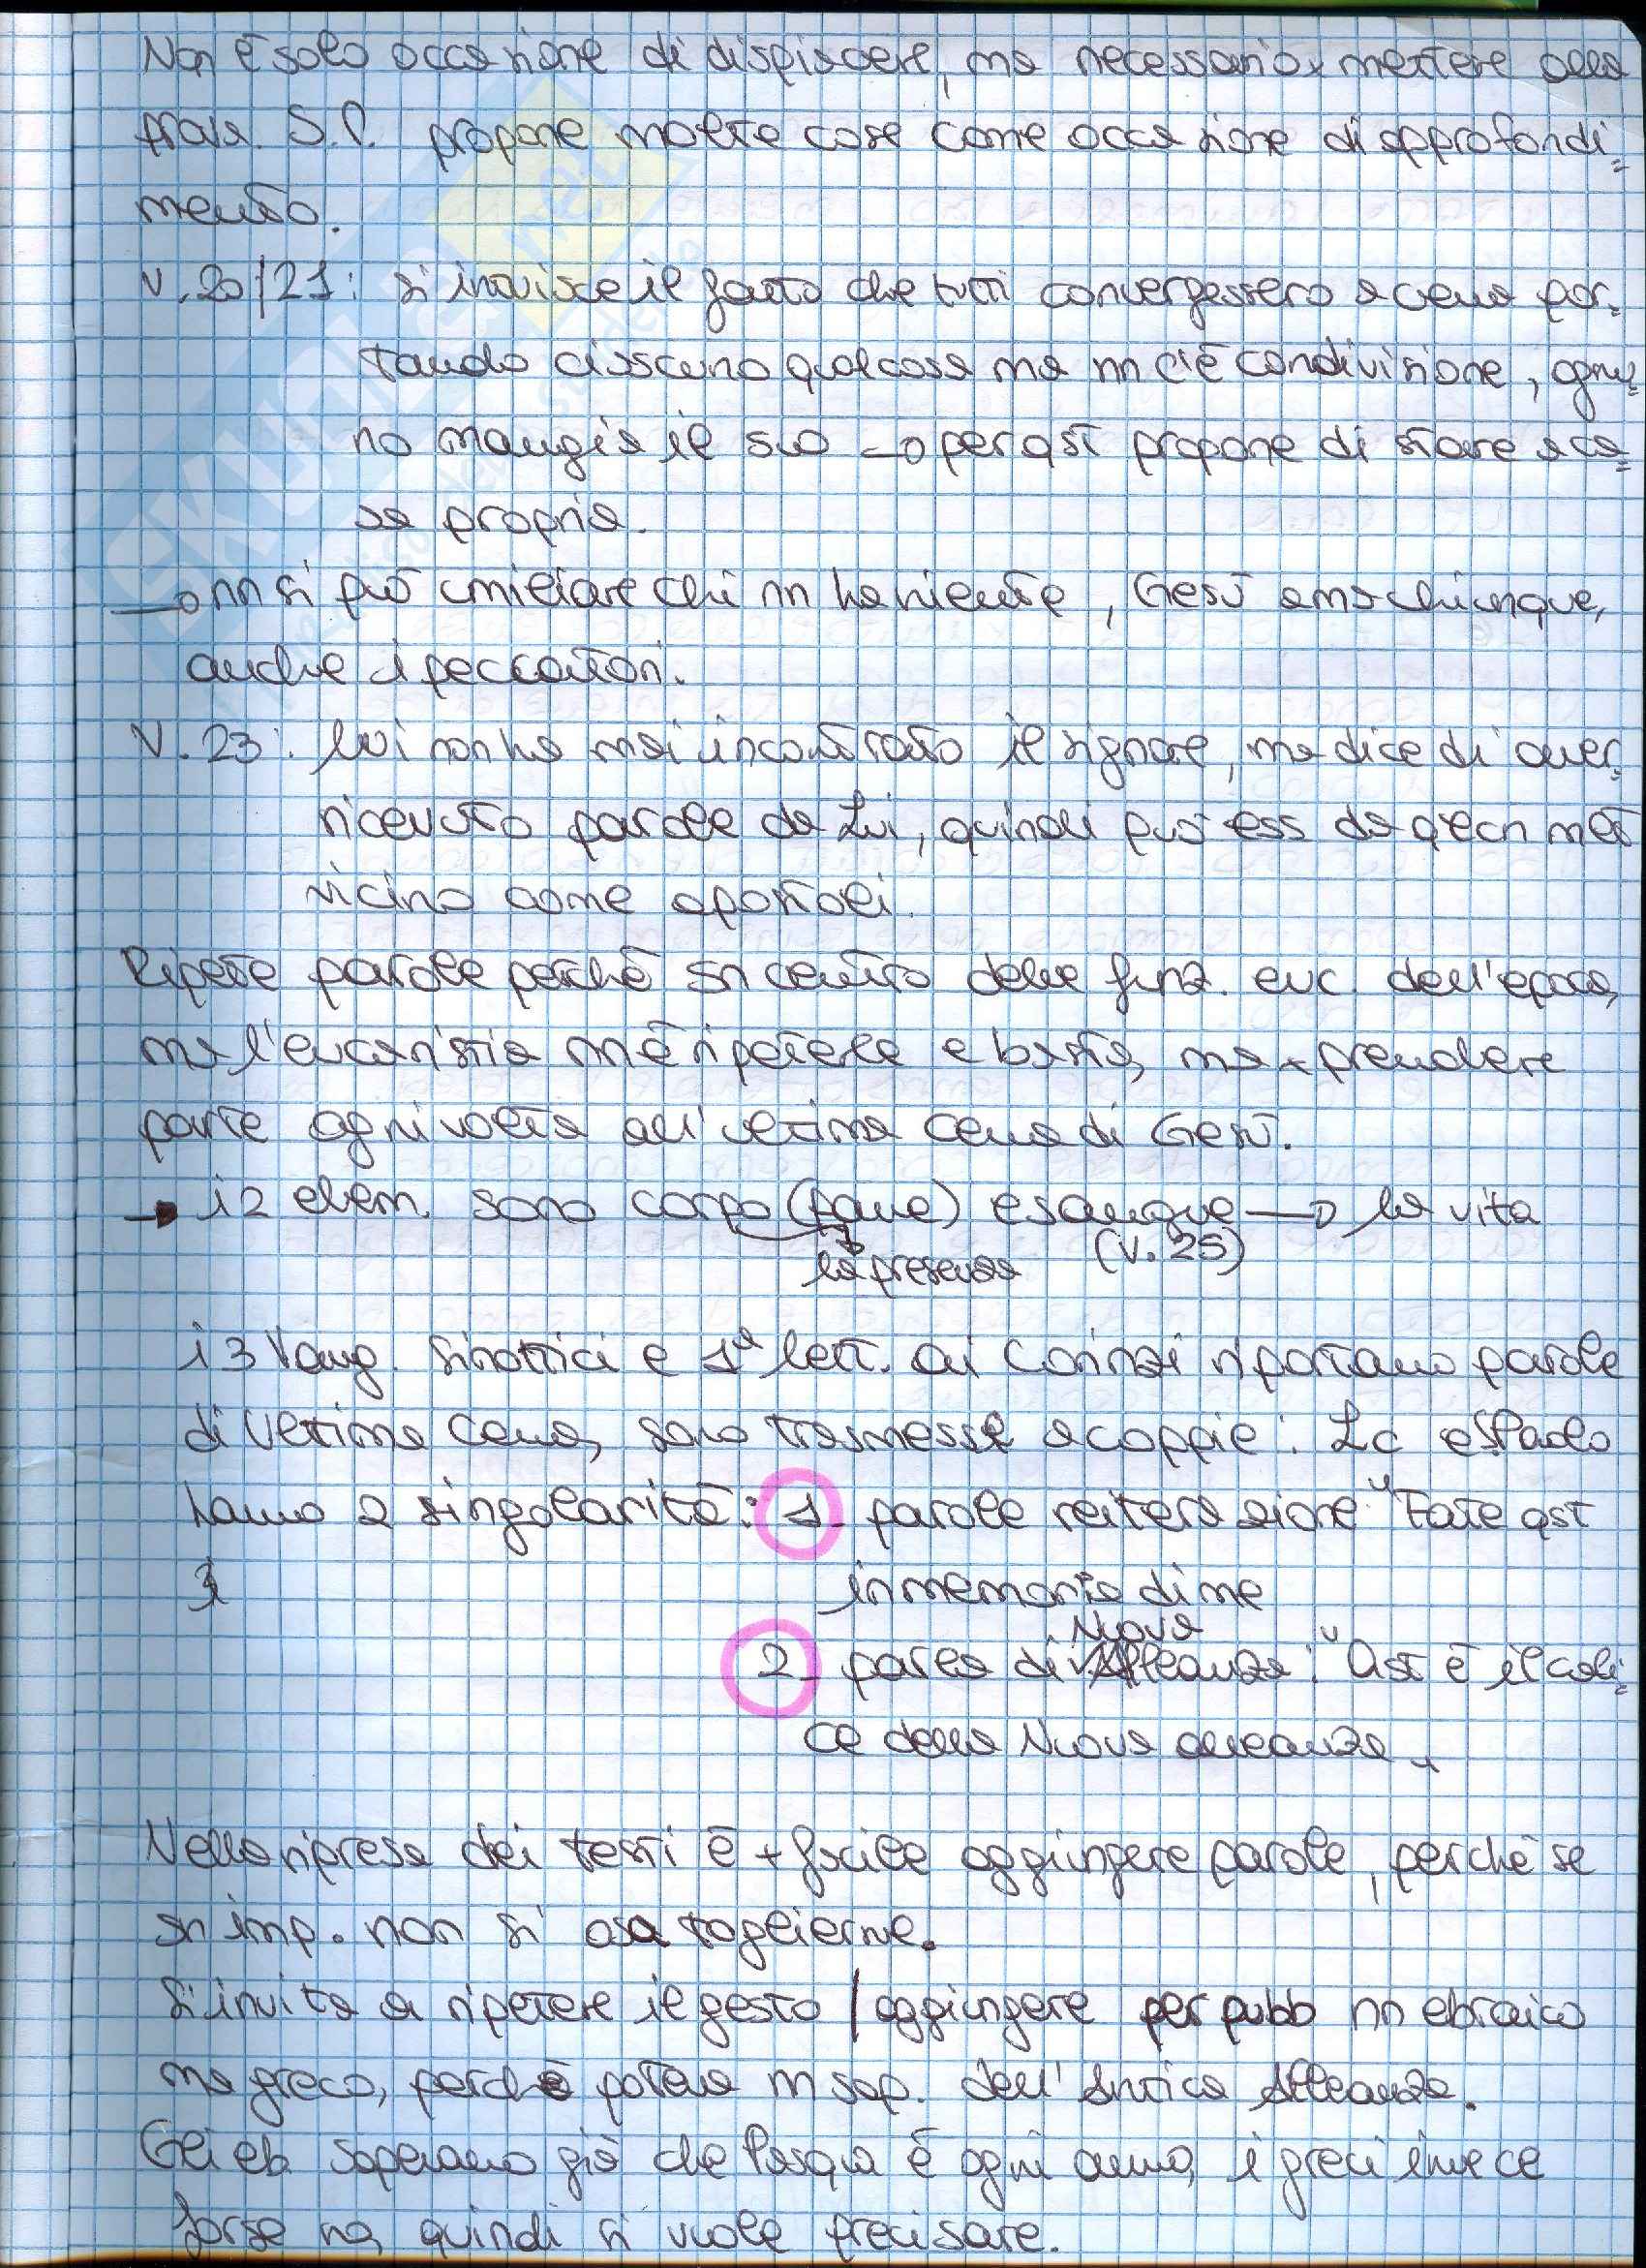 Non è solo occasione di dispiacere, ma necessario x mettere alla
prova. S.P. propone molte cose come occasione di approfondi=
mento.
V. 20/21: si intuisce il fatto che tutti convergessero a cena por=
tando ciascuno qualcosa ma nn c'è condivisione, ognu=
no mangia il suo → per qst propone di stare a ca=
sa propria.
→ nn si può umiliare chi nn ha niente, Gesù ama chiunque,
anche i peccatori.
V. 23: lui non ha mai incontrato il signore, ma dice di aver
ricevuto parole da Lui, quindi può ess da qlcn
vicino come apostoli.
Ripete parole perchè sn centro delle funz. euc. dell'epoca,
ma l'eucaristia nn è ripeterle e basta, ma x prendere
parte ogni volta all'ultima cena di Gesù.
→ i 2 elem. sono corpo (pane) e sangue → la vita
la presenza (V. 25)
i 3 Vang. Sinottici e 1ª lett. ai Corinzi riportano parole
di Ultima Cena, sono trasmesse a coppie: Lc e S.Paolo
hanno 2 singolarità: 1 parole reiterazione "Fate qst
in memoria di me
Nuova
2 parla di Alleanza: "Qst è il cali=
ce della Nuova alleanza"
Nella ripresa dei testi è + facile aggiungere parole, perchè se
sn imp. non si osa toglierne.
Si invita a ripetere il gesto / aggiungere per pubb nn ebraico
ma greco, perchè poteva nn sap. dell'Antica Alleanza.
Gli eb. sapevano già che Pasqua è ogni anno, i greci invece
forse no, quindi si vuole precisare.